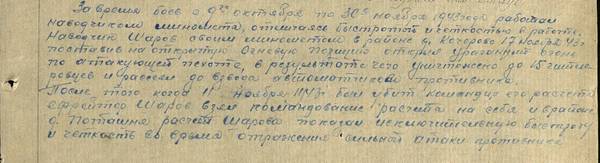 За время боев с 9го октября по 30е ноября 1943 года работая
наводчиком миномета, отличаясь быстротой и четкостью в работе.
Наводчик Шаров своим минометом в районе д. 17 ноября 43г
поставив на открытую огневую позицию открыл ураганный огонь
по атакующей пехоте, в результате чего уничтожено до 15 гитле
ровцев и рассеял до взвода автоматчиков противника.
После того когда ноября был убит командир его расчета
ефрейтор Шаров взял командование расчета на себя и в районе
д. Поташня расчет Шарова показал исключительную быстроту
и четкость во время отражения сильной атаки противника